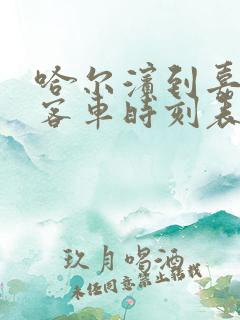 哈尔滨到嘉
客车时刻表
玖月喝酒
未经同意禁止转载